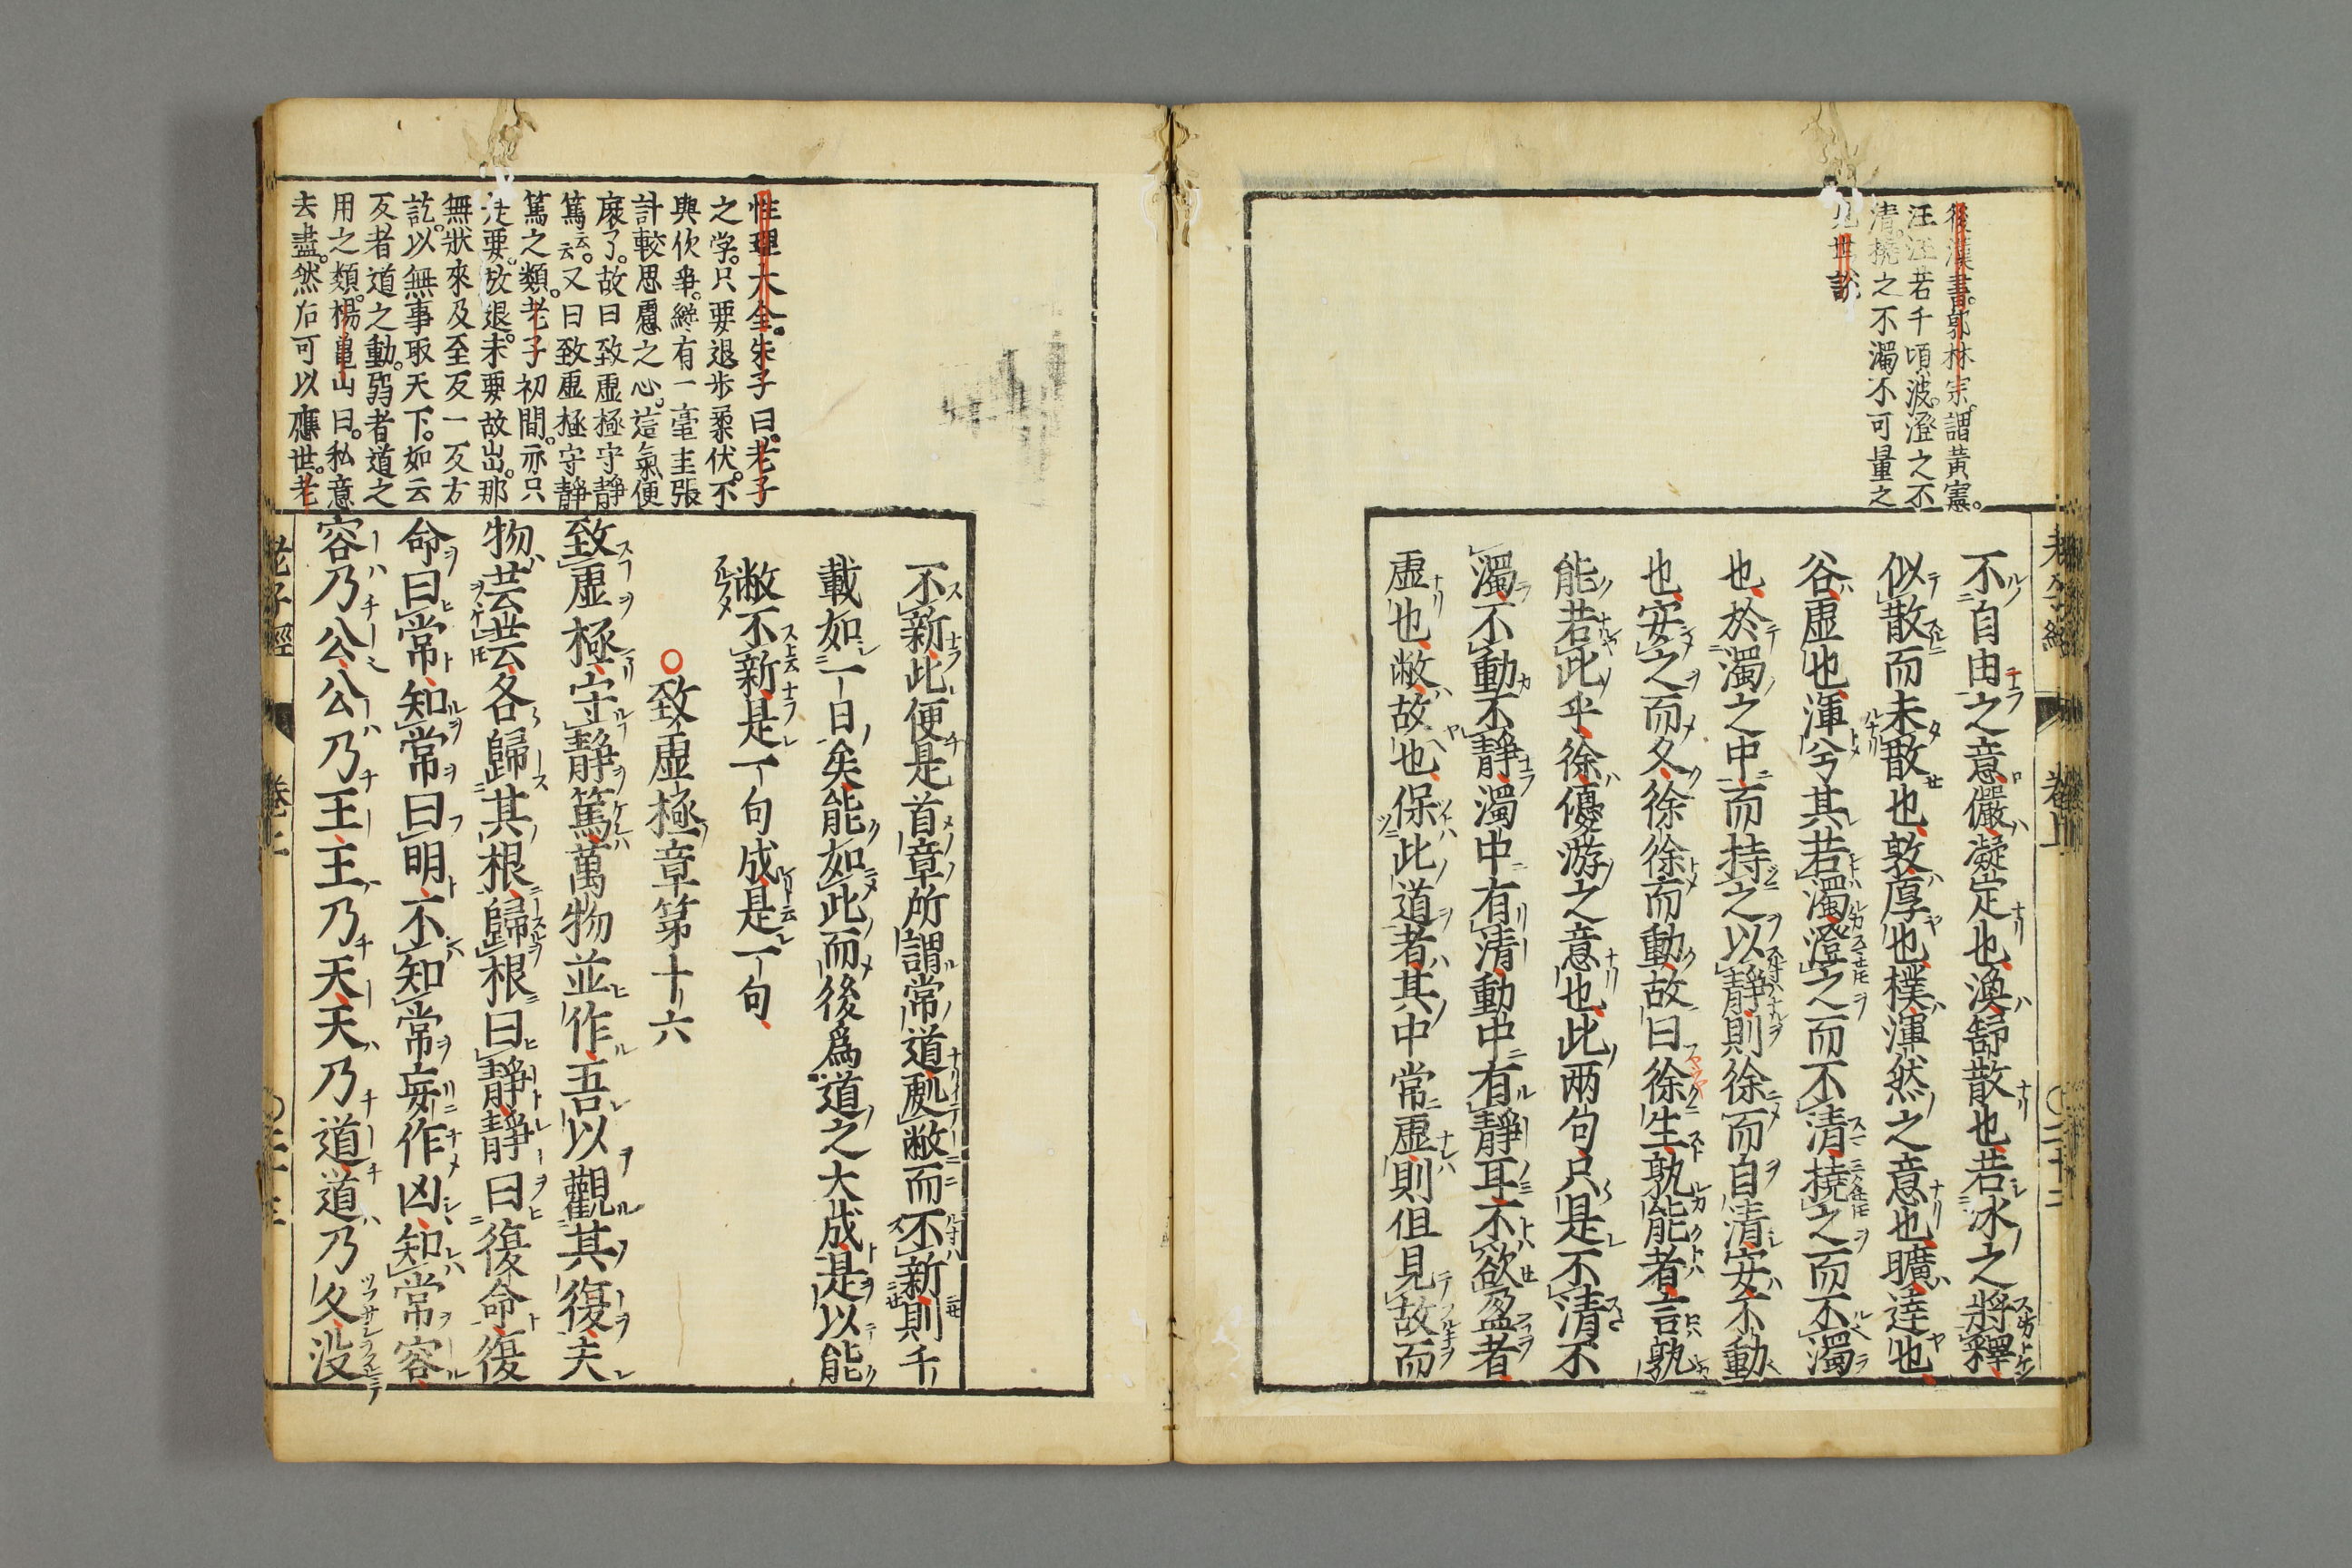 後漢書。郭林宗。謂黃憲。
汪汪若千頃波。澄之不
清。撓之不濁不可量之
見世說
不自由之意儼凝定也渙舒散也若冰之將釋
似散而未散也敦厚也樸渾然之意也曠達也
谷虛也渾兮其若濁澄之而不清撓之而不濁
也於濁之中而持之以靜則徐而自清安不動
也安之而久徐徐而動故曰徐生孰能者言孰
能若此乎徐優游之意也此兩句只是不清不
濁不動不靜濁中有清動中有靜耳不欲盈者
虛也敝故也保此道者其中常虛則但見故而
老子經 卷上 〇二十二
不新此便是首章所謂常道處敝而不新則千
載如一日矣能如此而後爲道之大成是以能
敝不新是一句成是一句
性理大全。朱子曰。老子
之学。只要退步柔伏。不
與伱爭。纔有一毫主張
計較思慮之心。這氣便
麁了。故曰致虛極守靜
篤云。又曰致虛極守靜
篤之類。老子初間。亦只
是要放退。未要放出。那
無狀來及至反一反方
說。以無事取天下。如云
反者道之動。弱者道之
用之類。楊龜山曰。私意
去盡。然后可以應世。老
〇致虛極章第十六
致虛極守靜篤萬物並作吾以觀其復夫
物芸芸各歸其根歸根曰靜靜曰復命復
命曰常知常曰明不知常妄作凶知常容
容乃公公乃王王乃天天乃道道乃久没
老子經 卷上 〇二十三